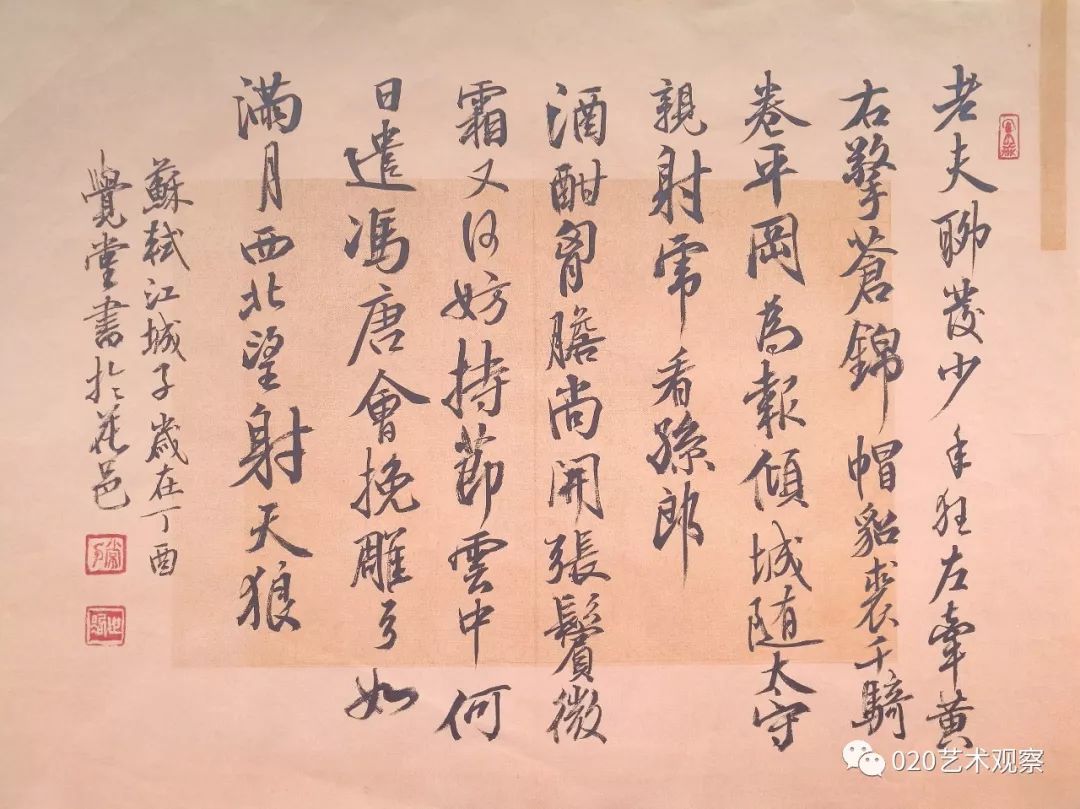 老夫聊發少年狂左牽黄
右擎蒼錦帽貂裘千騎
卷平岡為報傾城随太守
親射虎看孫郎
酒酣胷膽尚開張鬢微
霜又何妨持節雲中何
日遣馮唐會挽雕弓如
滿月西北望射天狼
蘇軾江城子歲在丁酉
覺堂書於花邑
020艺术观察